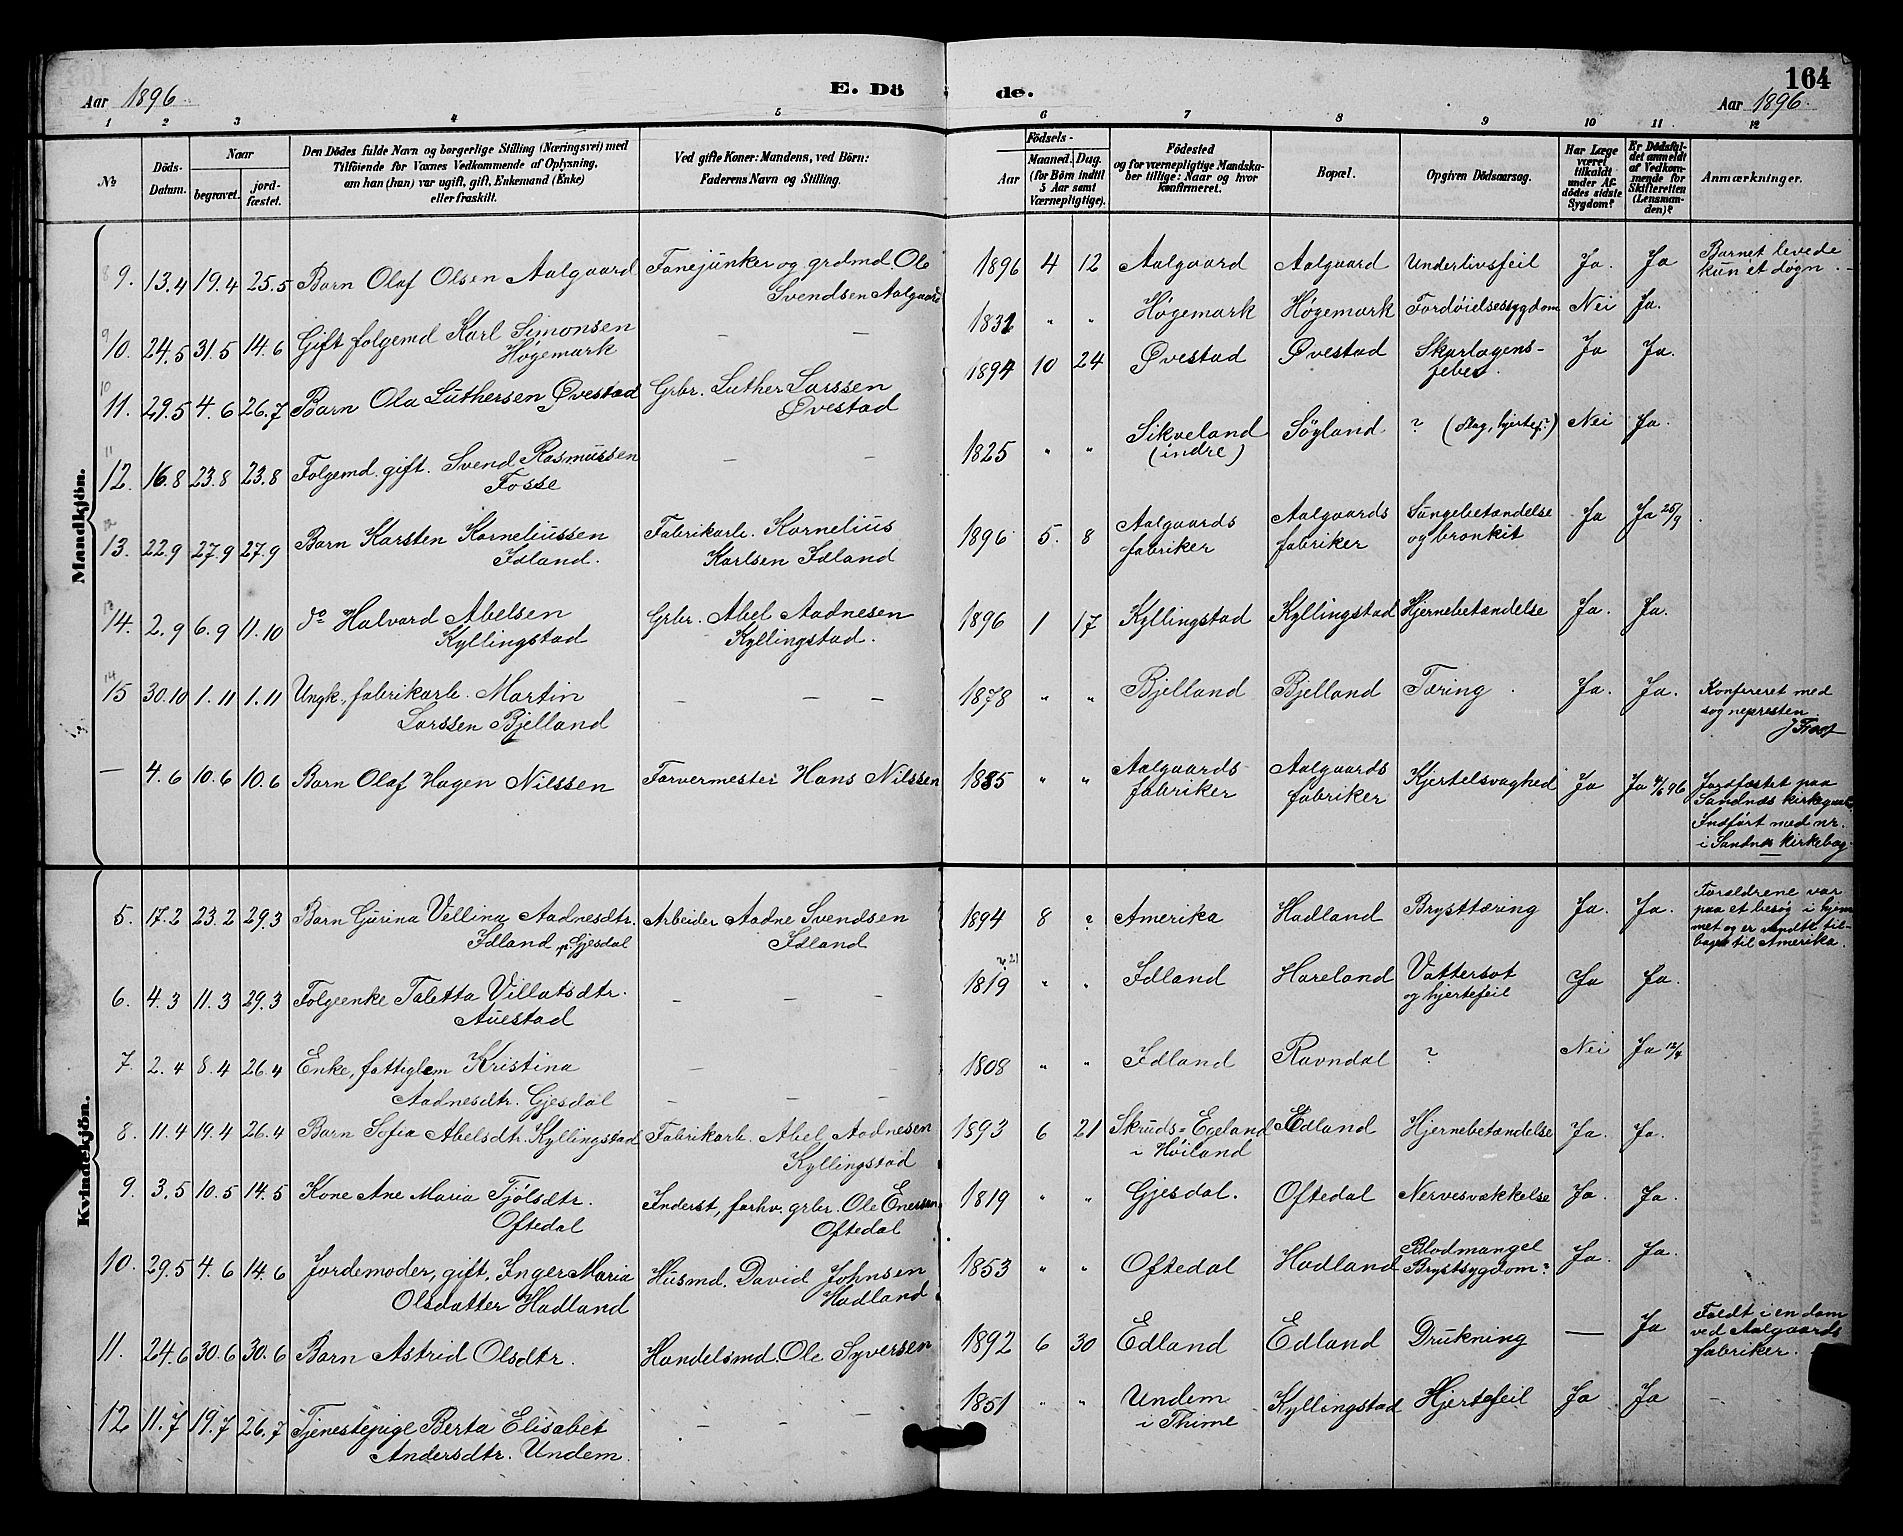 164
Aar 1896.
E. Dö de.
Aar 1896.
1 2 3 4 5 6 7 8 9 10 11 12
No.
Döds-Datum.
Naar
begravet.
jord-fæstet.
Den Dödes fulde Navn og borgerlige Stilling (Næringsvei) med
Tilföiende for Voxnes Vedkommende af Oplysning,
om han (hun) var ugift, gift, Enkemand (Enke)
eller fraskilt.
Ved gifte Koner: Mandens, ved Börn:
Faderens Navn og Stilling.
Födsels-
Aar
Maaned. Dag.
(for Börn indtil
5 Aar samt
Værnepligtige).
Födested
og for værnepligtige Mandska-
ber tillige: Naar og hvor
konfirmeret.
Bopæl.
Opgiven Dödsaarsag.
Har Læge
været
tilkaldt
under Af-
dödes sidste
Sygdom?
Er Dödsfal-
det anmeldt
af Vedkom-
mende for
Skifteretten
(Lensman-
den)?
Anmærkninger.
Mandkjön.
8 9. 13.4 19.4 25.5 Barn Olaf Olsen Aalgaard Fanejunker og grdmd. Ole
Svendsen Aalgaard
1896 4 12 Aalgaard Aalgaard Underlivsfeil Ja. Ja Barnet levede
kun et døgn.
9 10. 24.5 31.5 14.6 Gift folgemd Karl Simonsen
Høgemark
— —
1831 " " Høgemark Høgemark Fordøidelsessygdom Nei Ja.
10 11. 29.5 4.6 26.7 Barn Ola Luthersen Øvestad Grbr. Luther Larssen
Øvestad
1894 10 24 Øvestad Øvestad Skarlagens-
feber.
Ja Ja.
11 12. 16.8 23.8 23.8 Folgemd. gift. Svend Rasmussen
Fosse
— —
1825 " " Sikveland
(indre)
Søyland ? (slag, hjertef.?) Nei Ja.
12 13. 22.9 27.9 27.9 Barn Karsten Korneliussen
Idland.
Fabrikarb. Kornelius
Karlsen Idland
1896 5. 8 Aalgaards
fabriker
Aalgaards
fabriker
Lungebetændelse
og bronkit
Ja Ja 25/9
13 14. 2.9 6.9 11.10 do Halvard Abelsen
Kyllingstad
Grbr. Abel Aadnesen
Kyllingstad.
1896 1 17 Kyllingstad Kyllingstad Hjernebetændelse Ja. Ja.
14 15 30.10 1.11 1.11 Ungk., fabrikarb. Martin
Larssen Bjelland
— — —
1878 " " Bjelland Bjelland Tæring. Ja. Ja. Konfereret med
sognepresten
— 4.6 10.6 10.6 Barn Olaf Hagen Nilssen Farvermester Hans Nilssen
1885 " " Aalgaards
fabriker
Aalgaards
fabriker
Kjertelsvaghed Ja Ja 4/6 96 Jordfæstet paa
Sandnæs kirkegaard.
Indført med nr.
i Sandnæs kirkebog.
Kvindekjön.
5. 17.2 23.2 29.3 Barn Gurina Vellina Aadnesdtr.
Idland p. Gjesdal
Arbeider Aadne Svendsen
Idland
1894 8 ? Amerika Hadland Brysttæring Ja. Ja. Forældrene var
paa et besøg i hjem
met og er vendte til-
bage til Amerika.
6. 4.3 11.3 29.3 Folgeenke Taletta Villatsdtr.
Auestad
— — —
1819 " " Idland Hareland Vattersot
og hjertefeil
Ja Ja.
7. 2.4 8.4 26.4 Enke, fattiglem Kristina
Aadnesdtr. Gjesdal
— —
1808 " " Idland Ravndal ? Nei Ja 12/4
8. 11.4 19.4 26.4 Barn Sofia Abelsdtr. Kyllingstad Fabrikarb. Abel Aadnesen
Kyllingstad
1893 6 21 Skruds-Egeland
i Høiland
Edland Hjernebetændelse Ja. Ja.
9. 3.5 10.5 14.5 Kone Ane Maria Tjølsdtr.
Oftedal
Inderst, forhv. grbr. Ole Enersen
Oftedal
1819 " " Gjesdal. Oftedal Nervesvækkelse Ja. Ja.
10. 29.5 4.6 14.6 Jordemoder, gift, Inger Maria
Olsdatter Hadland
Husmd. David Johnsen
Hadland
1853 " " Oftedal Hadland Blodmangel
Brystsygdom?
Ja. Ja.
11. 24.6 30.6 30.6 Barn Astrid Olsdtr. Handelsmd. Ole Syversen
1892 6 30 Edland Edland Drukning — Ja Faldt i en dam
ved Aalgaards
fabriker.
12 11.7 19.7 26.7 Tjenestepige Berta Elisabet
Andersdtr. Undem.
— — —
1851 " " Undem
i Thime
Kyllingstad Hjertefeil Ja Ja —